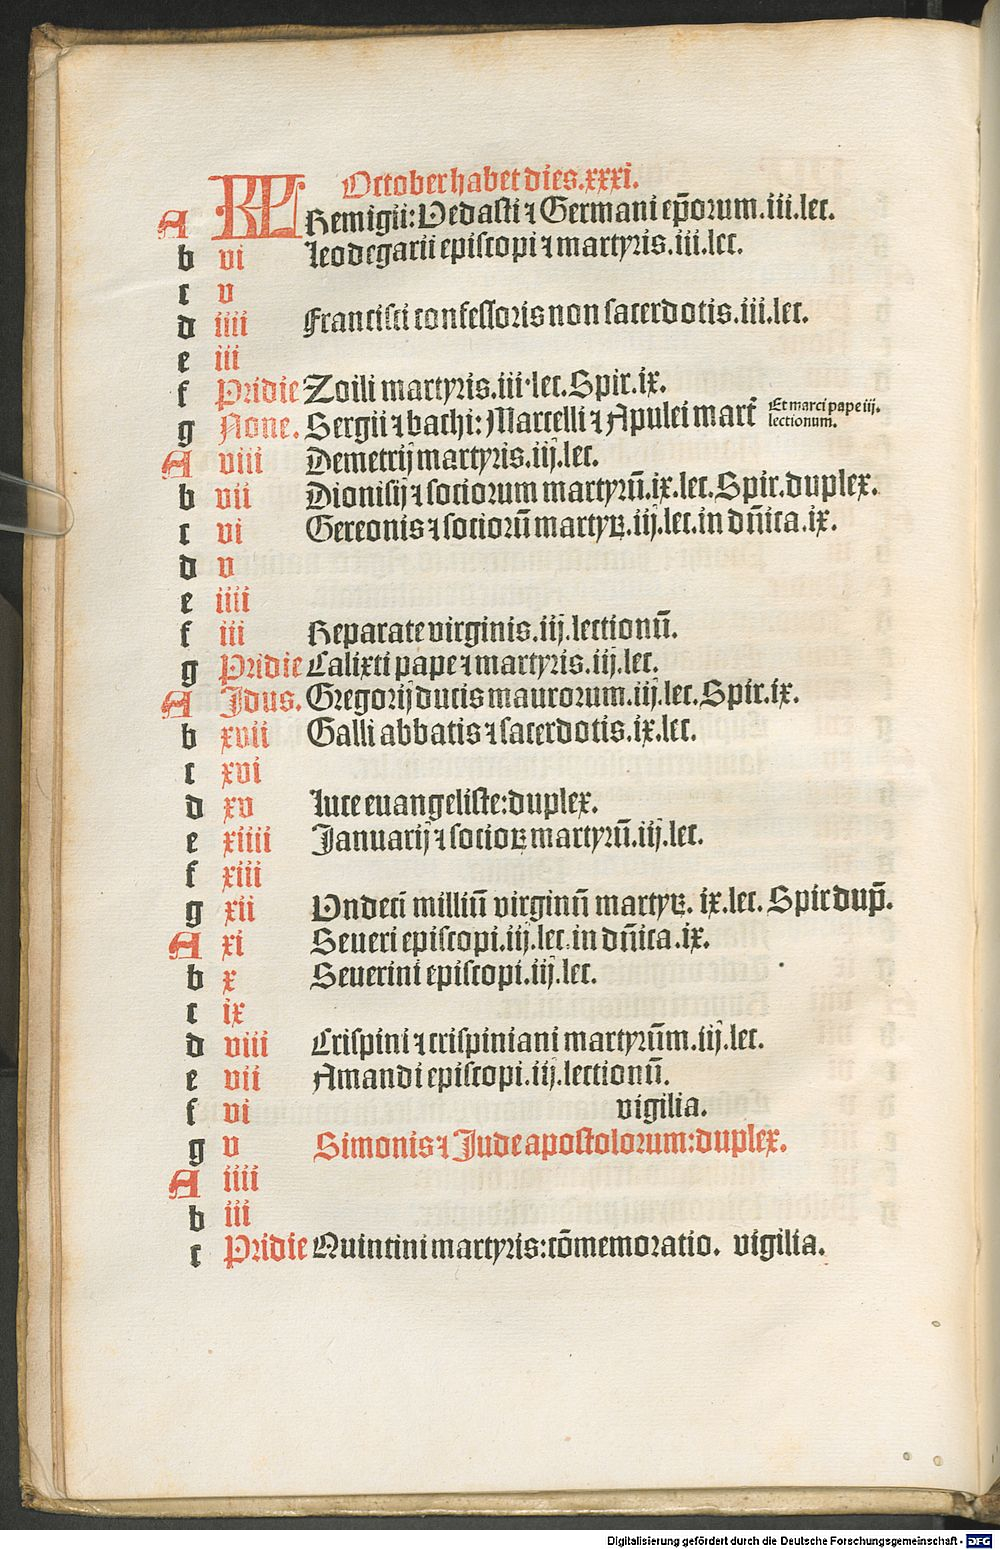 KL October habet dies.xxxi.
A Remigii: Vedasti ⁊ Germani ep̄orum.iii.lec.
b vi Leodegarii episcopi ⁊ martyris.iii.lec.
c v
d iiii Francisci confessoris non sacerdotis.iii.lec.
e iii
f Pridie Zoili martyris.iii.lec.Spir.ix.
g None. Sergii ⁊ bachi: Marcelli ⁊ Apulei mart̄ Et marci pape iij.
lectionum.
A viii Demetrij martyris.iij.lec.
b vii Dionisij ⁊ sociorum martyrū.ix.lec.Spir.duplex.
c vi Gereonis ⁊ sociorū martyꝝ.iij.lec.in dn̄ica.ix.
d v
e iiii
f iii Reparate virginis.iij.lectionū.
g Pridie Calixti pape ⁊ martyris.iij.lec.
A Idus. Gregorij ducis maurorum.iij.lec.Spir.ix.
b xvii Galli abbatis ⁊ sacerdotis.ix.lec.
c xvi
d xv Luce euangeliste:duplex.
e xiiii Januarij ⁊ socioꝝ martyrū.iij.lec.
f xiii
g xii Vndeci milliū virginū martyꝝ. ix.lec. Spir dup̄.
A xi Seueri episcopi.iij.lec.in dn̄ica.ix.
b x Seuerini episcopi.iij.lec.
c ix
d viii Crispini ⁊ crispiniani martyrūm.iij.lec.
e vii Amandi episcopi.iij.lectionū.
f vi vigilia.
g v Simonis ⁊ Jude apostolorum:duplex.
A iiii
b iii
c Pridie Quintini martyris:cōmemoratio. vigilia.
Digitalisierung gefördert durch die Deutsche Forschungsgemeinschaft - DFG